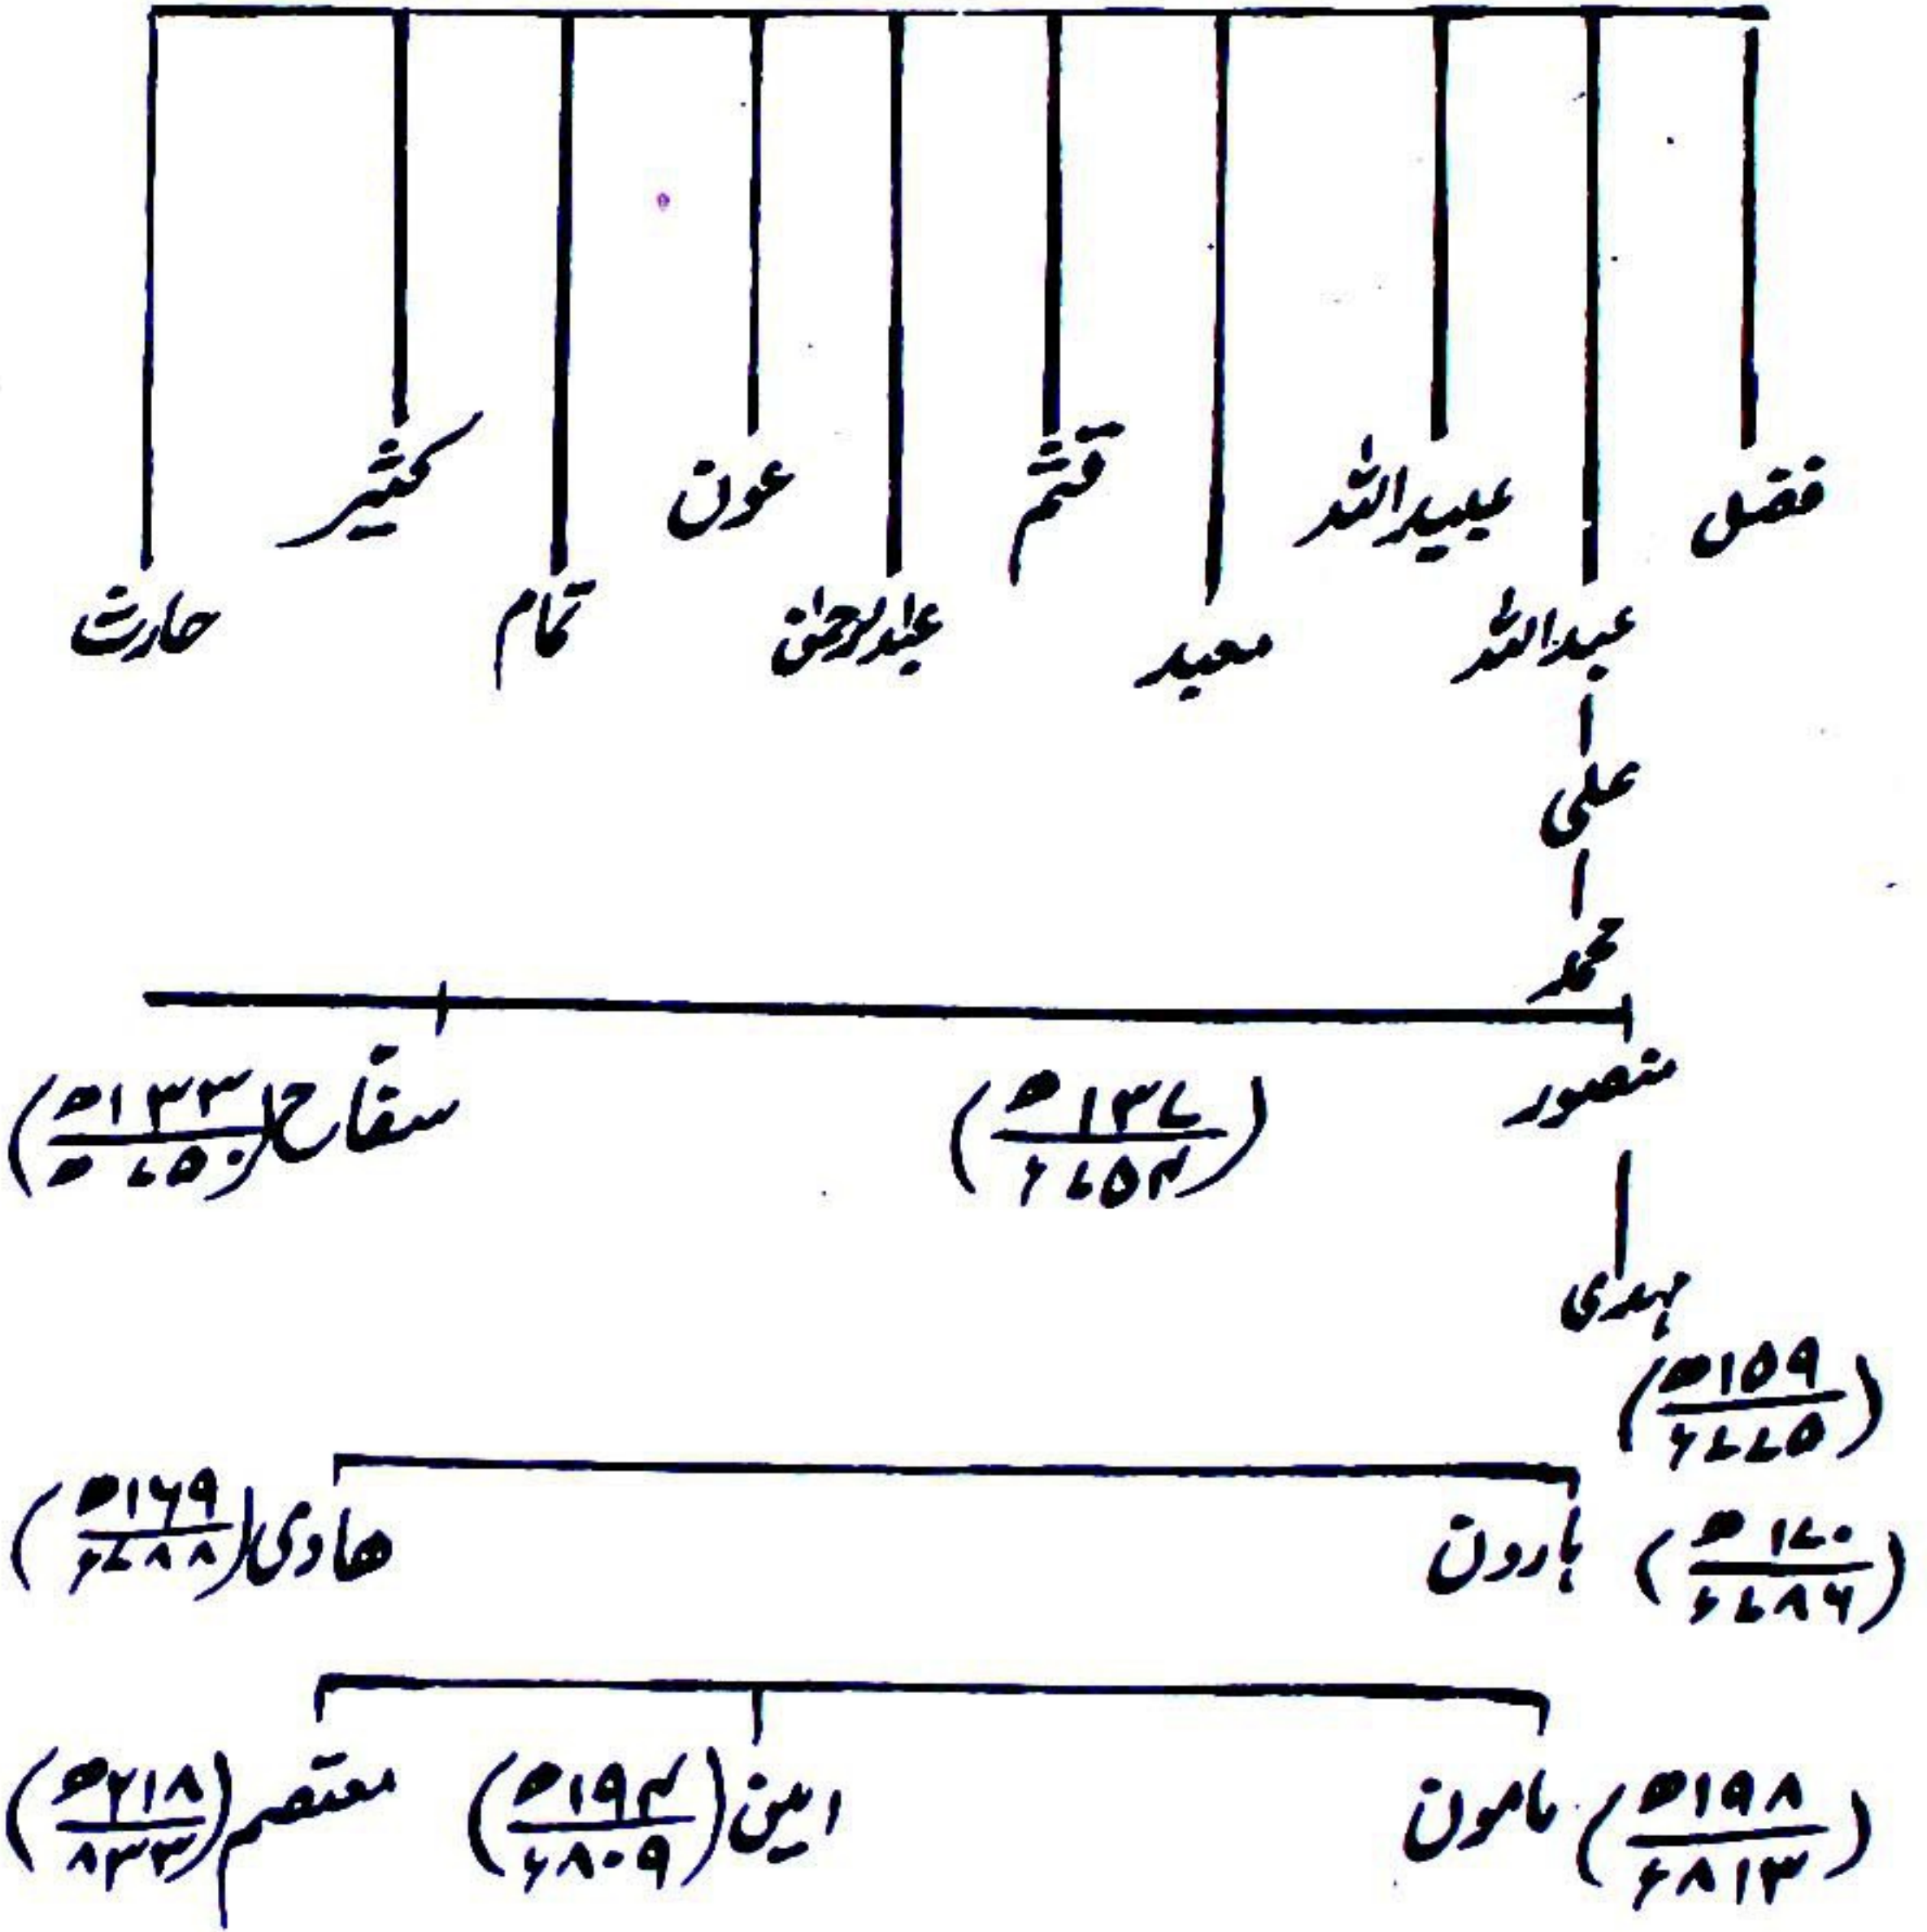 فضل عبیداللہ قثم عون کثیر
عبداللہ معبد عبدالرحمٰن تمام حارث
علی
محمد
منصور (۱۳۷ھ / ۷۵۴ء) سفّاح (۱۳۳ھ / ۷۵۰ھ)
مہدی
(۱۵۹ھ / ۷۷۵ء)
(۱۷۰ھ / ۷۸۶ء) ہارون ھادی (۱۶۹ھ / ۷۸۸ء)
(۱۹۸ھ / ۸۱۳ء) مامون امین (۱۹۴ھ / ۸۰۹ء) معتصم (۲۱۸ھ / ۸۳۳)